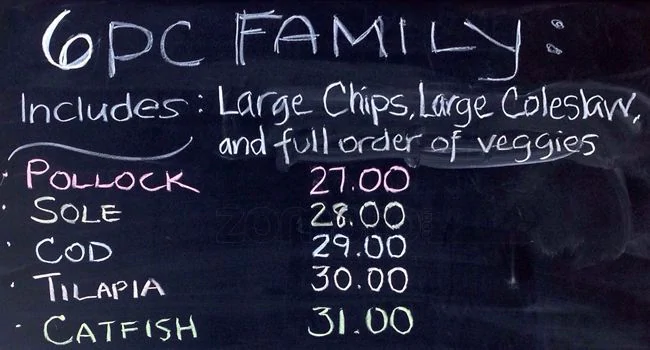 6PC FAMILY:
Includes: Large Chips, Large Coleslaw,
and full order of veggies
· POLLOCK 27.00
· SOLE 28.00
· COD 29.00
· TILAPIA 30.00
· CATFISH 31.00